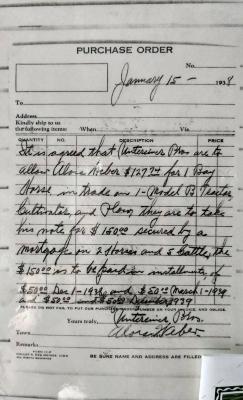 PURCHASE ORDER
No.
January 15 - 1938
To
Address
Kindly ship to us
the following items: When Via
QUANTITY NO. DESCRIPTION PRICE
It is agreed that Untereiner Bros are to
allow Alois Haber $127.00 for 1 Bay
Horse in trade on 1- Model B Tractor
Cultivator, and Plow, they are to take
his note for $150.00 secured by a
Mortgage on 2 Horses and 5 Cattle, the
$150.00 is to be paid in installments of
$50.00 Dec 1-1938, and $50.00 March 1-1939
and $50.00 December 1939
PLEASE DO NOT FAIL TO PUT OUR PURCHASE ORDER NUMBER ON YOUR INVOICE, AND OBLIGE.
Yours truly, Untereiner Bros.
Town Alois Haber
Remarks
BE SURE NAME AND ADDRESS ARE FILLED